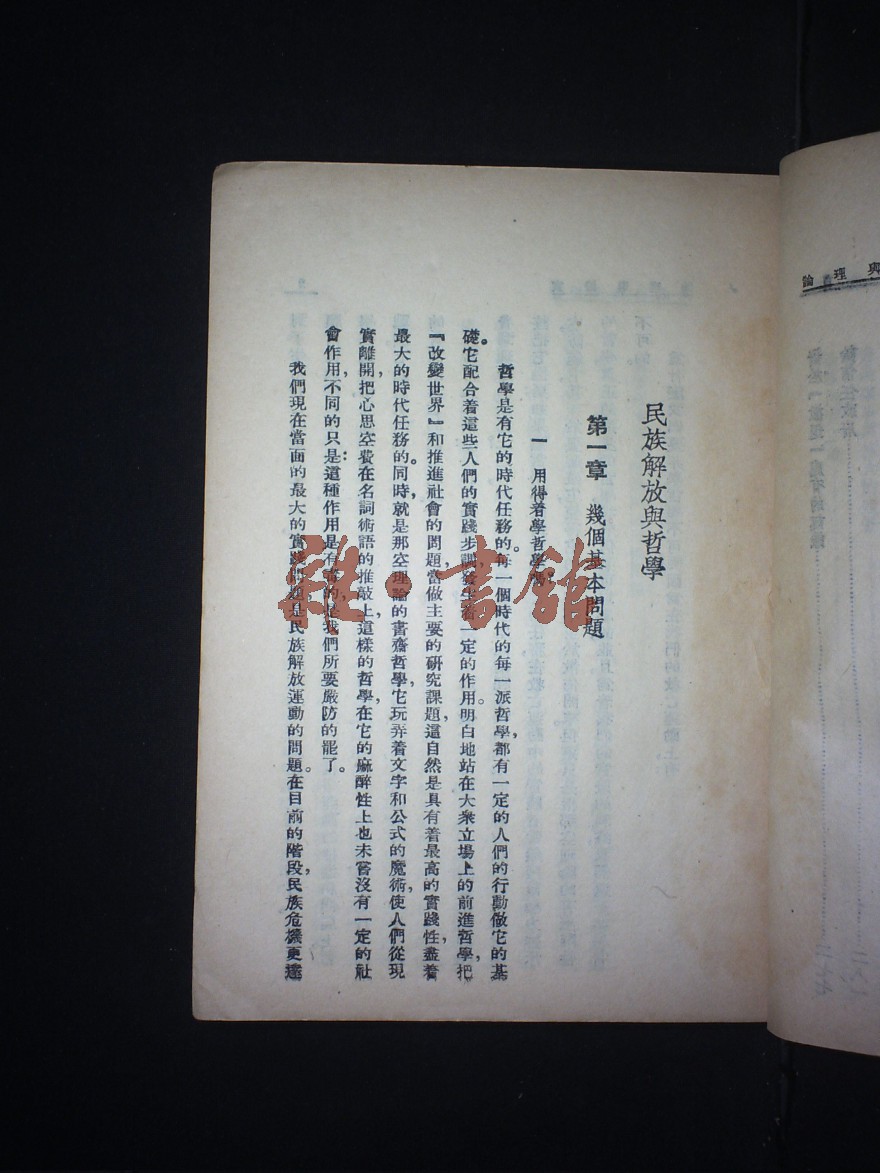 民族解放與哲學
第一章 幾個基本問題
一 用得着學哲學嗎
哲學是有它的時代任務的。每一個時代的每一派哲學,都有一定的人們的行動做它的基
礎。它配合着這些人們的實踐步調,發生着一定的作用。明白地站在大衆立場上的前進哲學,把
『改變世界』和推進社會的問題,當做主要的研究課題,這自然是具有着最高的實踐性,盡着
最大的時代任務的。同時,就是那空理論的書齋哲學,它玩弄着文字和公式的魔術,使人們從現
實離開,把心思空費在名詞術語的推敲上,這樣的哲學,在它的麻醉性上,也未嘗沒有一定的社
會作用,不同的只是:這種作用是有毒的,是我們所要嚴防的罷了。
我們現在當面的最大的實踐問題,是民族解放運動的問題。在目前的階段,民族危機更達
與理論
雜·書館